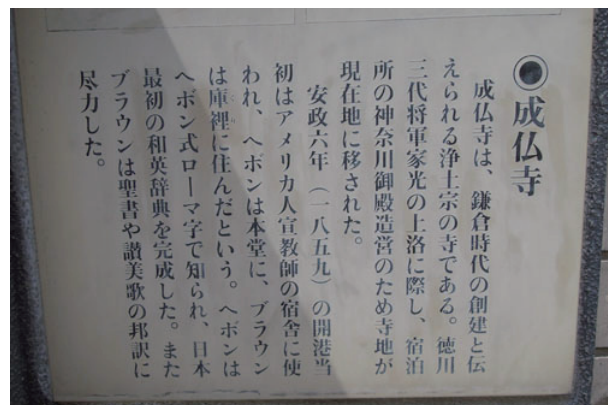 ◉成仏寺
成仏寺は、鎌倉時代の創建と伝
えられる浄土宗の寺である。徳川
三代将軍家光の上洛に際し、宿泊
所の神奈川御殿造営のため寺地が
現在地に移された。
安政六年（一八五九）の開港当
初はアメリカ人宣教師の宿舎に使
われ、ヘボンは本堂に、ブラウン
は庫裡に住んだという。ヘボンは
ヘボン式ローマ字で知られ、日本
最初の和英辞典を完成した。また
ブラウンは聖書や讃美歌の邦訳に
尽力した。